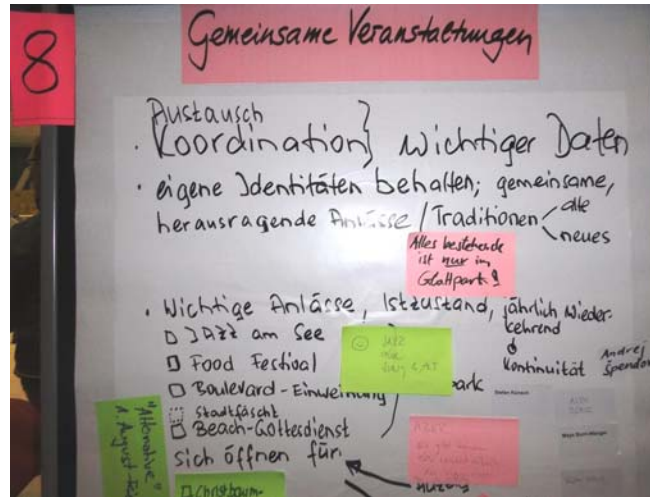 8
Gemeinsame Veranstaltungen
Austausch
• Koordination} wichtiger Daten
• eigene Identitäten behalten; gemeinsame,
herausragende Anlässe / Traditionen < alte
neues
Alles bestehende
ist nur im
Glattpark!
• Wichtige Anlässe, Istzustand, jährlich wieder-
kehrend
□ JAZZ am See
□ Food Festival
Kontinuität
Andrej
□ Boulevard-Einweihung
park
□ Stadtfäscht
□ Beach-Gottesdienst
sich öffnen für
"Alternative"
1. August-
□ Christbaum-